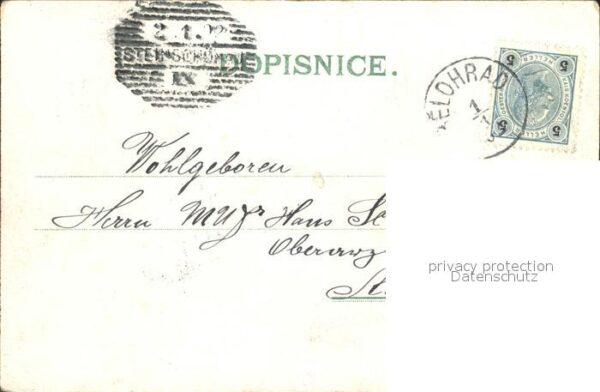 2.1.02
STEINSCHÖN
IX
DOPISNICE.
BĚLOHRAD
1/1
5 HELLER 5
5 HELLER 5
Wohlgeboren
Herrn MUDr Hans Sc
Oberarz
St
privacy protection
Datenschutz